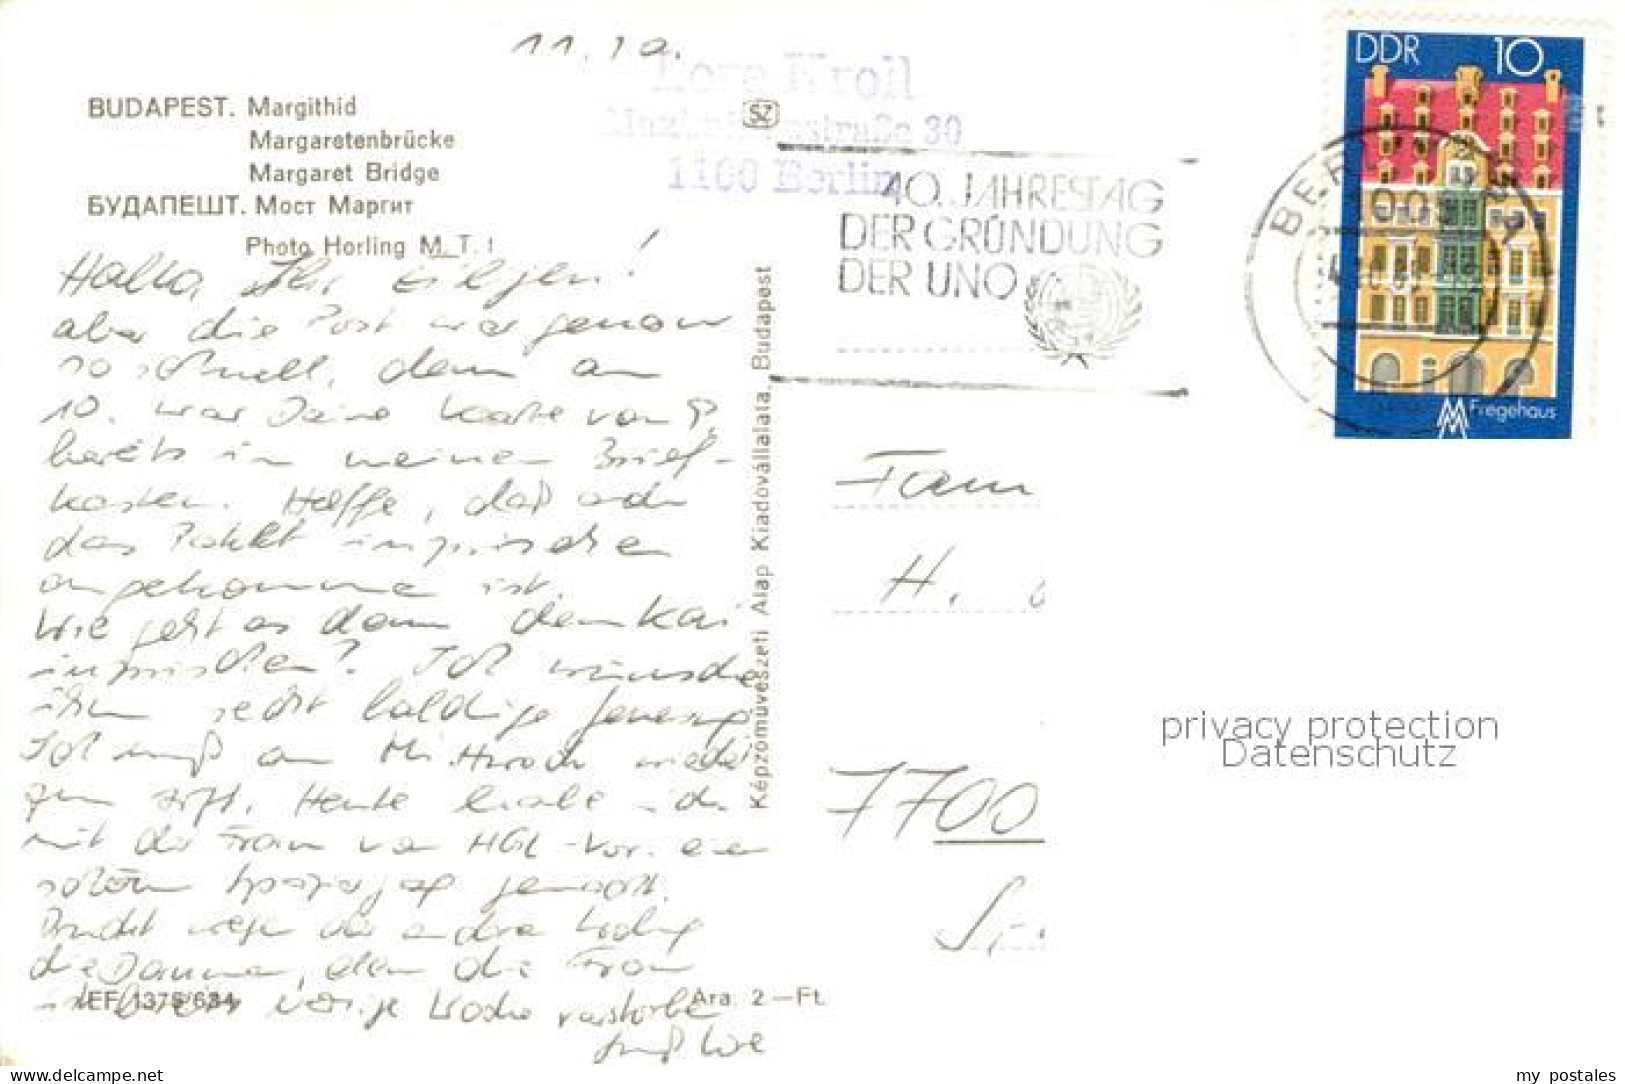 11.10.
Lore Kroll
straße 30
1100 Berlin
BUDAPEST. Margithid
Margaretenbrücke
Margaret Bridge
БУДАПЕШТ. Мост Маргит
Photo Horling M. T. I
SZ
40. JAHRESTAG
DER GRÜNDUNG
DER UNO
DDR 10
Fregehaus
BERLIN
Hallo, Ihr Eiligen!
aber die Post war genau
so schnell, denn am
10. war Deine Karte vom 9.
bereits in meinem Brief-
kasten. Hoffe, daß auch
das Paket inzwischen
angekommen ist.
Wie geht es dann dem Kai
inzwischen? Ich wünsche
ihm recht baldige Genesung
Ich muß am Mittwoch wieder
zum Heute habe ich
mit der Frau von
gemacht.
Drückt wegen der andren
die Daumen, denn die Frau
ist vorige Woche verstorben
Gruß Lore
Képzőművészeti Alap Kiadóvállalata, Budapest
IEF 1378/634
Ara: 2—Ft
Fam
H.
7700
privacy protection
Datenschutz
www.delcampe.net
my_postales